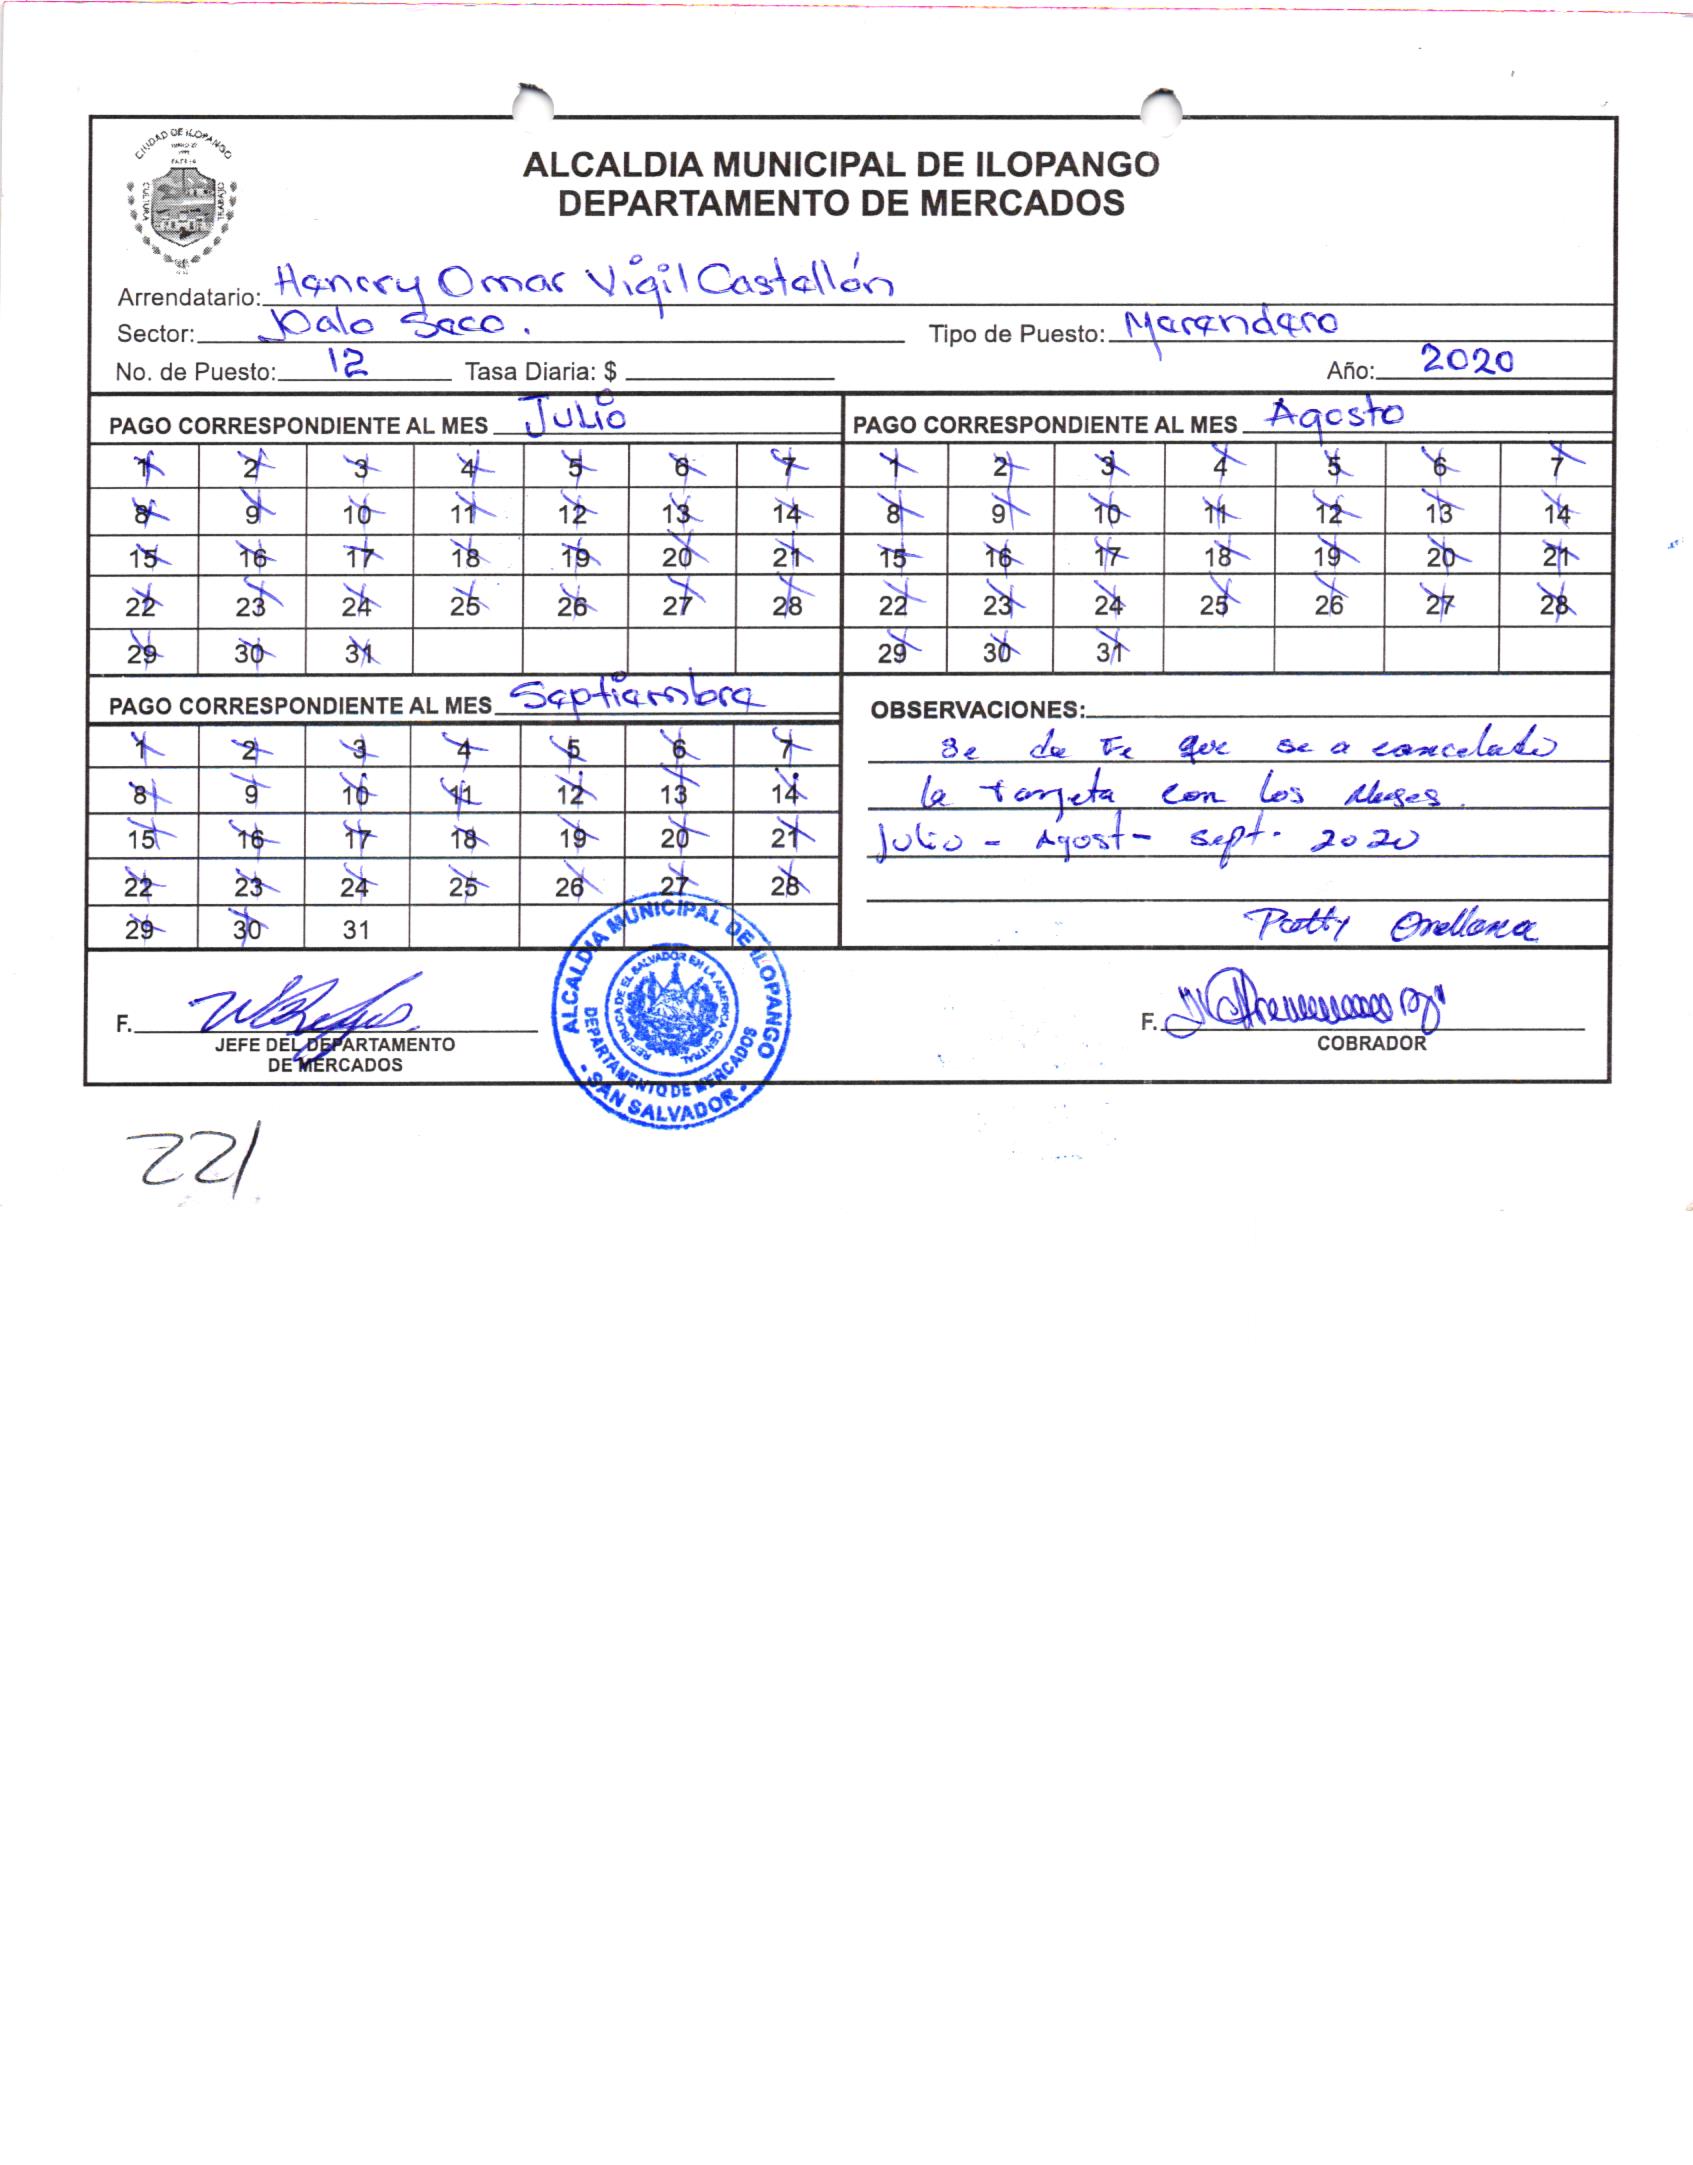 CIUDAD DE ILOPANGO
CULTURA
TRABAJO
ALCALDIA MUNICIPAL DE ILOPANGO
DEPARTAMENTO DE MERCADOS
Arrendatario: Henrry Omar Vigil Castellón
Sector: Palo Seco. Tipo de Puesto: Merendero
No. de Puesto: 12 Tasa Diaria: $ Año: 2020
PAGO CORRESPONDIENTE AL MES Julio
1 2 3 4 5 6 7
8 9 10 11 12 13 14
15 16 17 18 19 20 21
22 23 24 25 26 27 28
29 30 31
PAGO CORRESPONDIENTE AL MES Agosto
1 2 3 4 5 6 7
8 9 10 11 12 13 14
15 16 17 18 19 20 21
22 23 24 25 26 27 28
29 30 31
PAGO CORRESPONDIENTE AL MES Septiembre
1 2 3 4 5 6 7
8 9 10 11 12 13 14
15 16 17 18 19 20 21
22 23 24 25 26 27 28
29 30 31
OBSERVACIONES:
se da Fe que se a cancelado
la tarjeta con los Meses.
Julio - Agost - Sept. 2020
Patty Orellana
F.
JEFE DEL DEPARTAMENTO
DE MERCADOS
ALCALDIA MUNICIPAL DE ILOPANGO
REPUBLICA DE EL SALVADOR EN LA AMERICA CENTRAL
DEPARTAMENTO DE MERCADOS
- SAN SALVADOR -
F.
COBRADOR
221